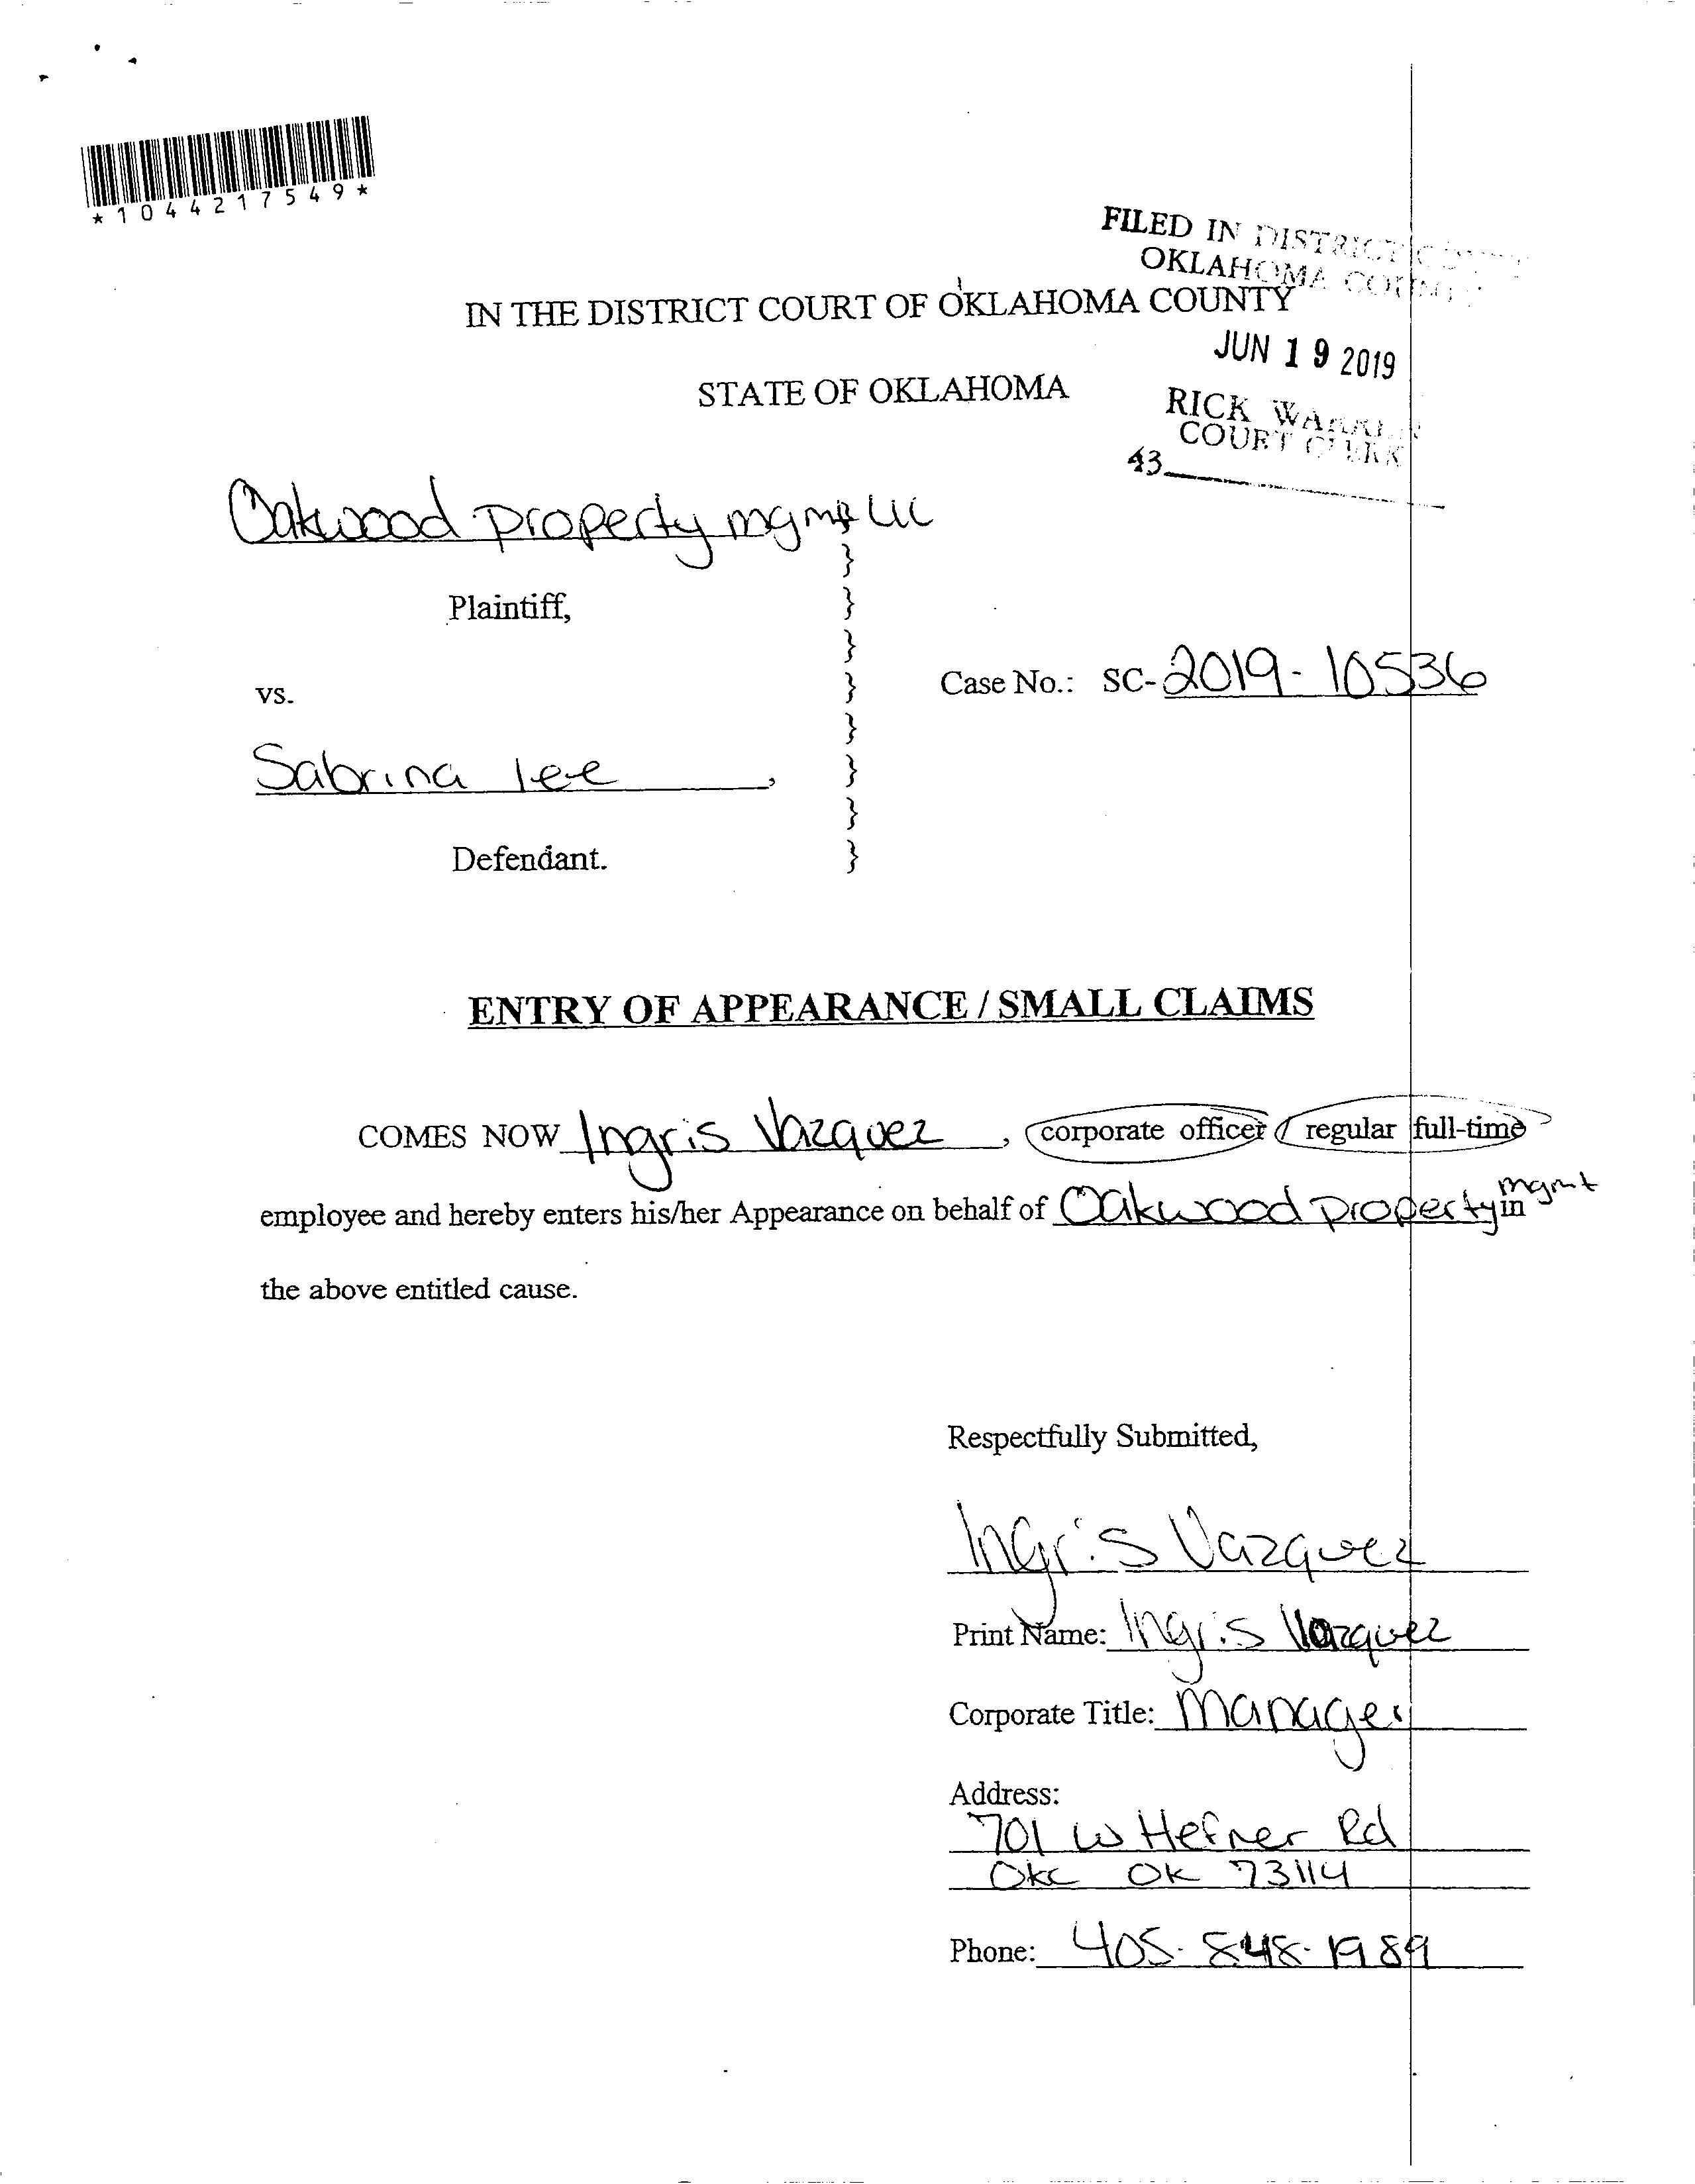 *1044217549*
FILED IN DISTRICT COURT
OKLAHOMA COUNTY
IN THE DISTRICT COURT OF OKLAHOMA COUNTY
JUN 19 2019
STATE OF OKLAHOMA
RICK WARREN
COURT CLERK
43
Oakwood property mgmt LLC
}
Plaintiff, }
}
vs. } Case No.: SC-2019-10536
}
Sabrina lee, }
}
Defendant. }
ENTRY OF APPEARANCE / SMALL CLAIMS
COMES NOW Ingris Vazquez, corporate officer / regular full-time
employee and hereby enters his/her Appearance on behalf of Oakwood property mgmt in
the above entitled cause.
Respectfully Submitted,
Ingris Vazquez
Print Name: Ingris Vazquez
Corporate Title: Manager
Address:
701 W Hefner Rd
Okc OK 73114
Phone: 405-848-1989